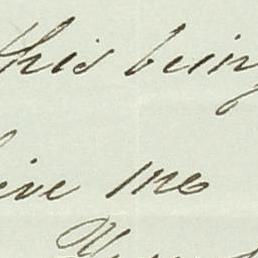 this being
eive me